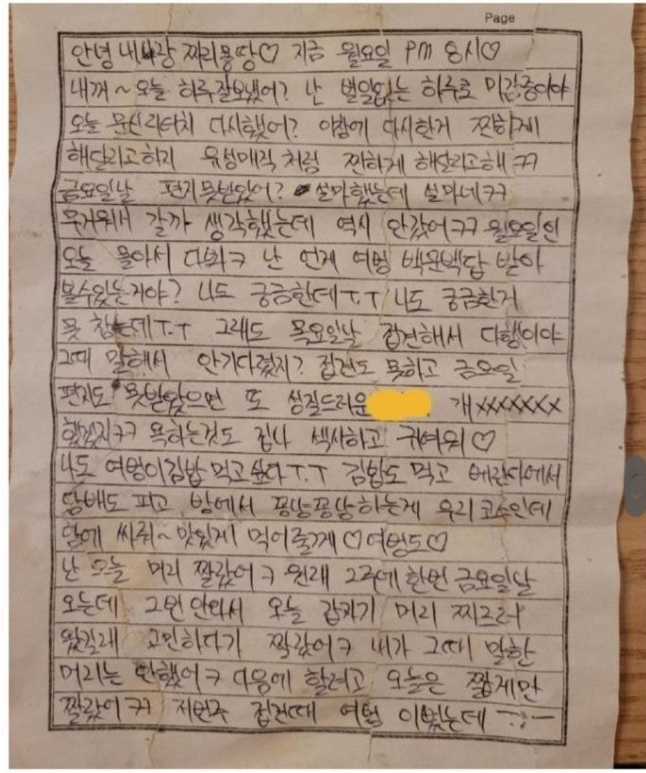 Page
안녕 내사랑 찌리몽땅♡ 지금 월요일 PM 8시♡
내꺼~ 오늘 하루 잘보냈어? 난 별일없는 하루로 마감중이야
오늘 문신리터치 다시했어? 아참에 다시한거 찐하게
해달라고하지 유성매직처럼 찐하게 해달라고해ㅋㅋ
금요일날 편지못받았어? 설마했는데 설마네ㅋㅋ
무거워서 갈까 생각했는데 역시 안갔어ㅋㅋ 월요일인
오늘 몰아서 다봐ㅋ 난 언제 여벙 백문백답 받아
볼수있는거야? 나도 궁금한데T.T 나도 궁금한거
못 참는데T.T 그래도 목요일날 접견해서 다행이야
그때 말해서 안기다렸지? 접견도 못하고 금요일
편지도 못받았으면 또 성질드러운 개xxxxxxx
했겠지ㅋㅋ 욕하는것도 집나 섹시하고 귀여워♡
나도 여벙이김밥 먹고싶다T.T 김밥도 먹고 베란다에서
담배도 피고 방에서 퐁샹퐁샹하는게 우리 코스인데
담에 싸줘~ 맛있게 먹어줄게♡여벙도♡
난 오늘 머리 짤랐어ㅋ 원래 2주에 한번 금요일날
오는데 그인 안와서 오늘 갑자기 머리 찌르러
왔길래 고민하다가 짤랐어ㅋ 씨가 그때 말한
머리는 안했어ㅋ 다음에 할려고 오늘은 짧게만
짤랐어ㅋㅋ 저번주 접견때 여벙 이뻤는데